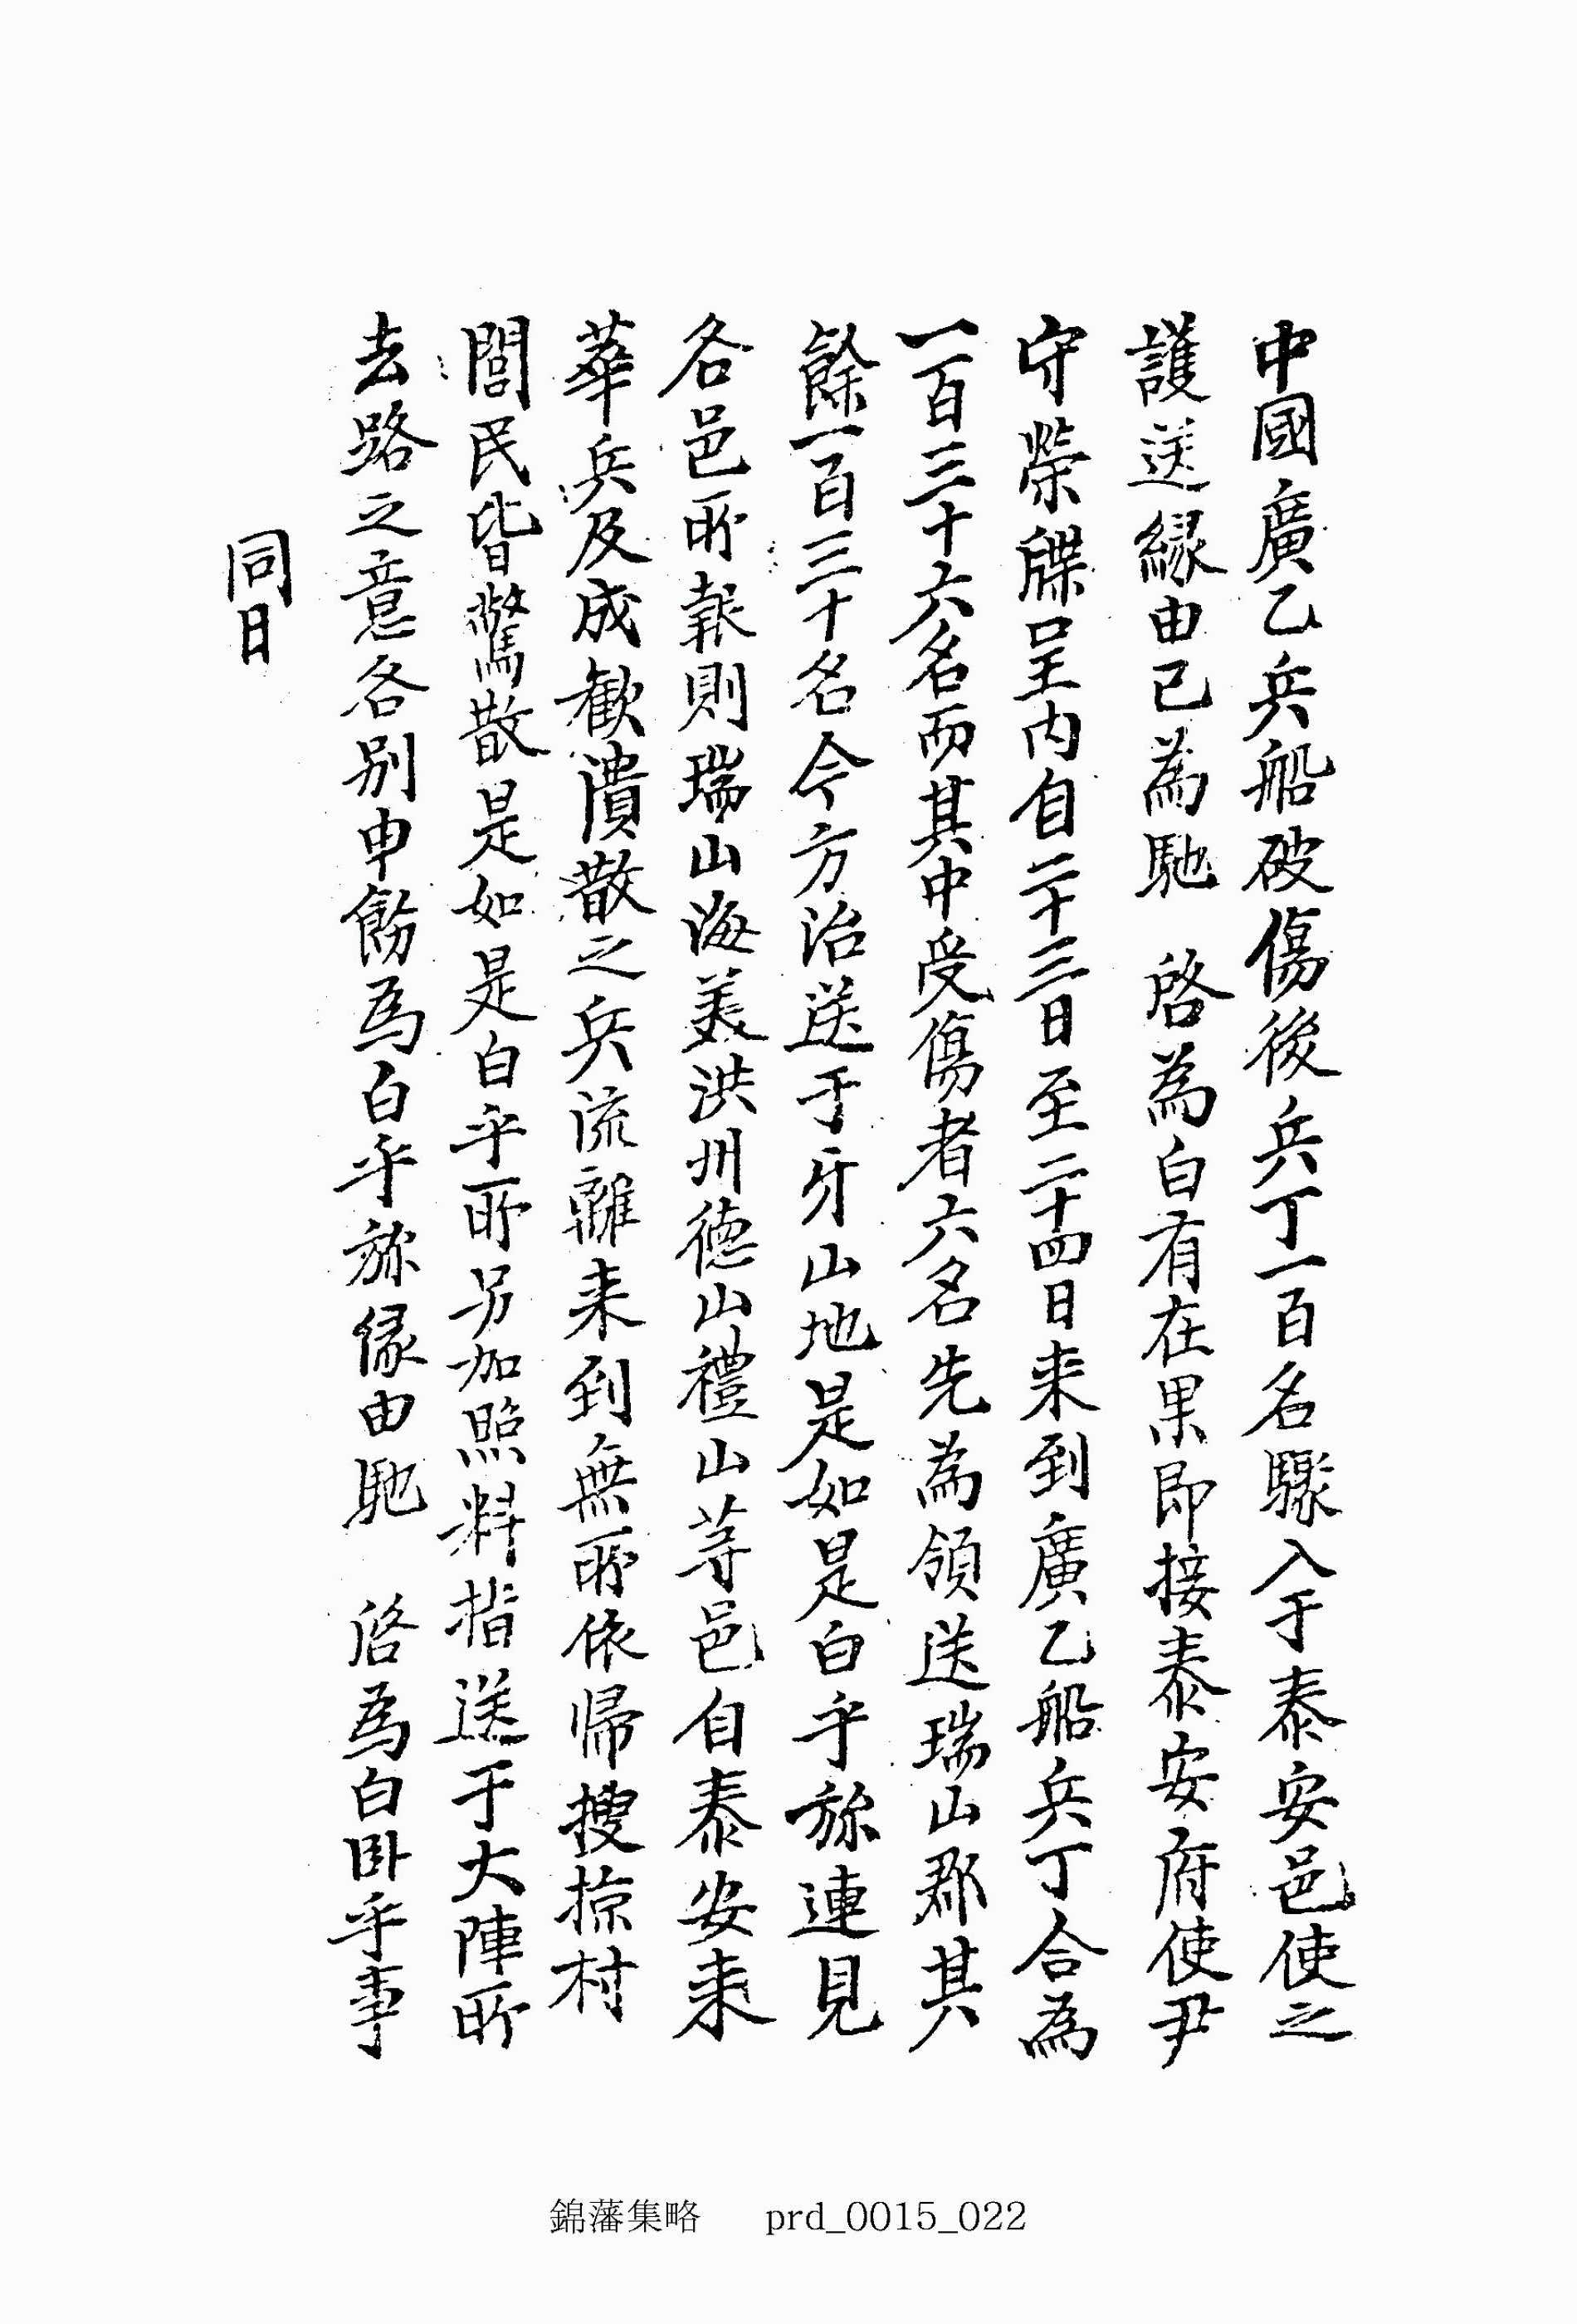 中國廣乙兵船破傷後兵丁一百名驟入于泰安邑使之
護送緣由已為馳 啓為白有在果即接泰安府使尹
守榮牒呈內自二十三日至二十四日来到廣乙船兵丁合為
一百三十六名而其中受傷者六名先為領送瑞山郡其
餘一百三十名今方治送于牙山地是如是白乎旀連見
各邑所報則瑞山海美洪州德山禮山等邑自泰安来
華兵及成歡潰散之兵流離来到無所依歸搜掠村
閭民皆驚散是如是白乎所另加照料指送于大陣所
去路之意各別申飭為白乎旀緣由馳 啓為白卧乎事
同日
錦藩集略 prd_0015_022